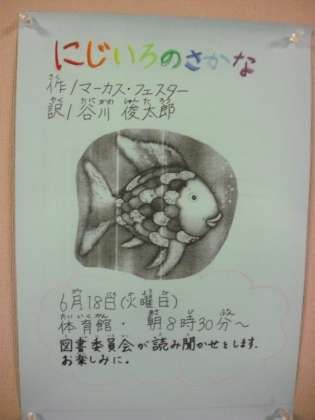 にじいろのさかな
作/マーカス・フェスター
訳/谷川 俊太郎
6月18日(火曜日)
体育館・朝8時30分～
図書委員会が読み聞かせをします。
お楽しみに。